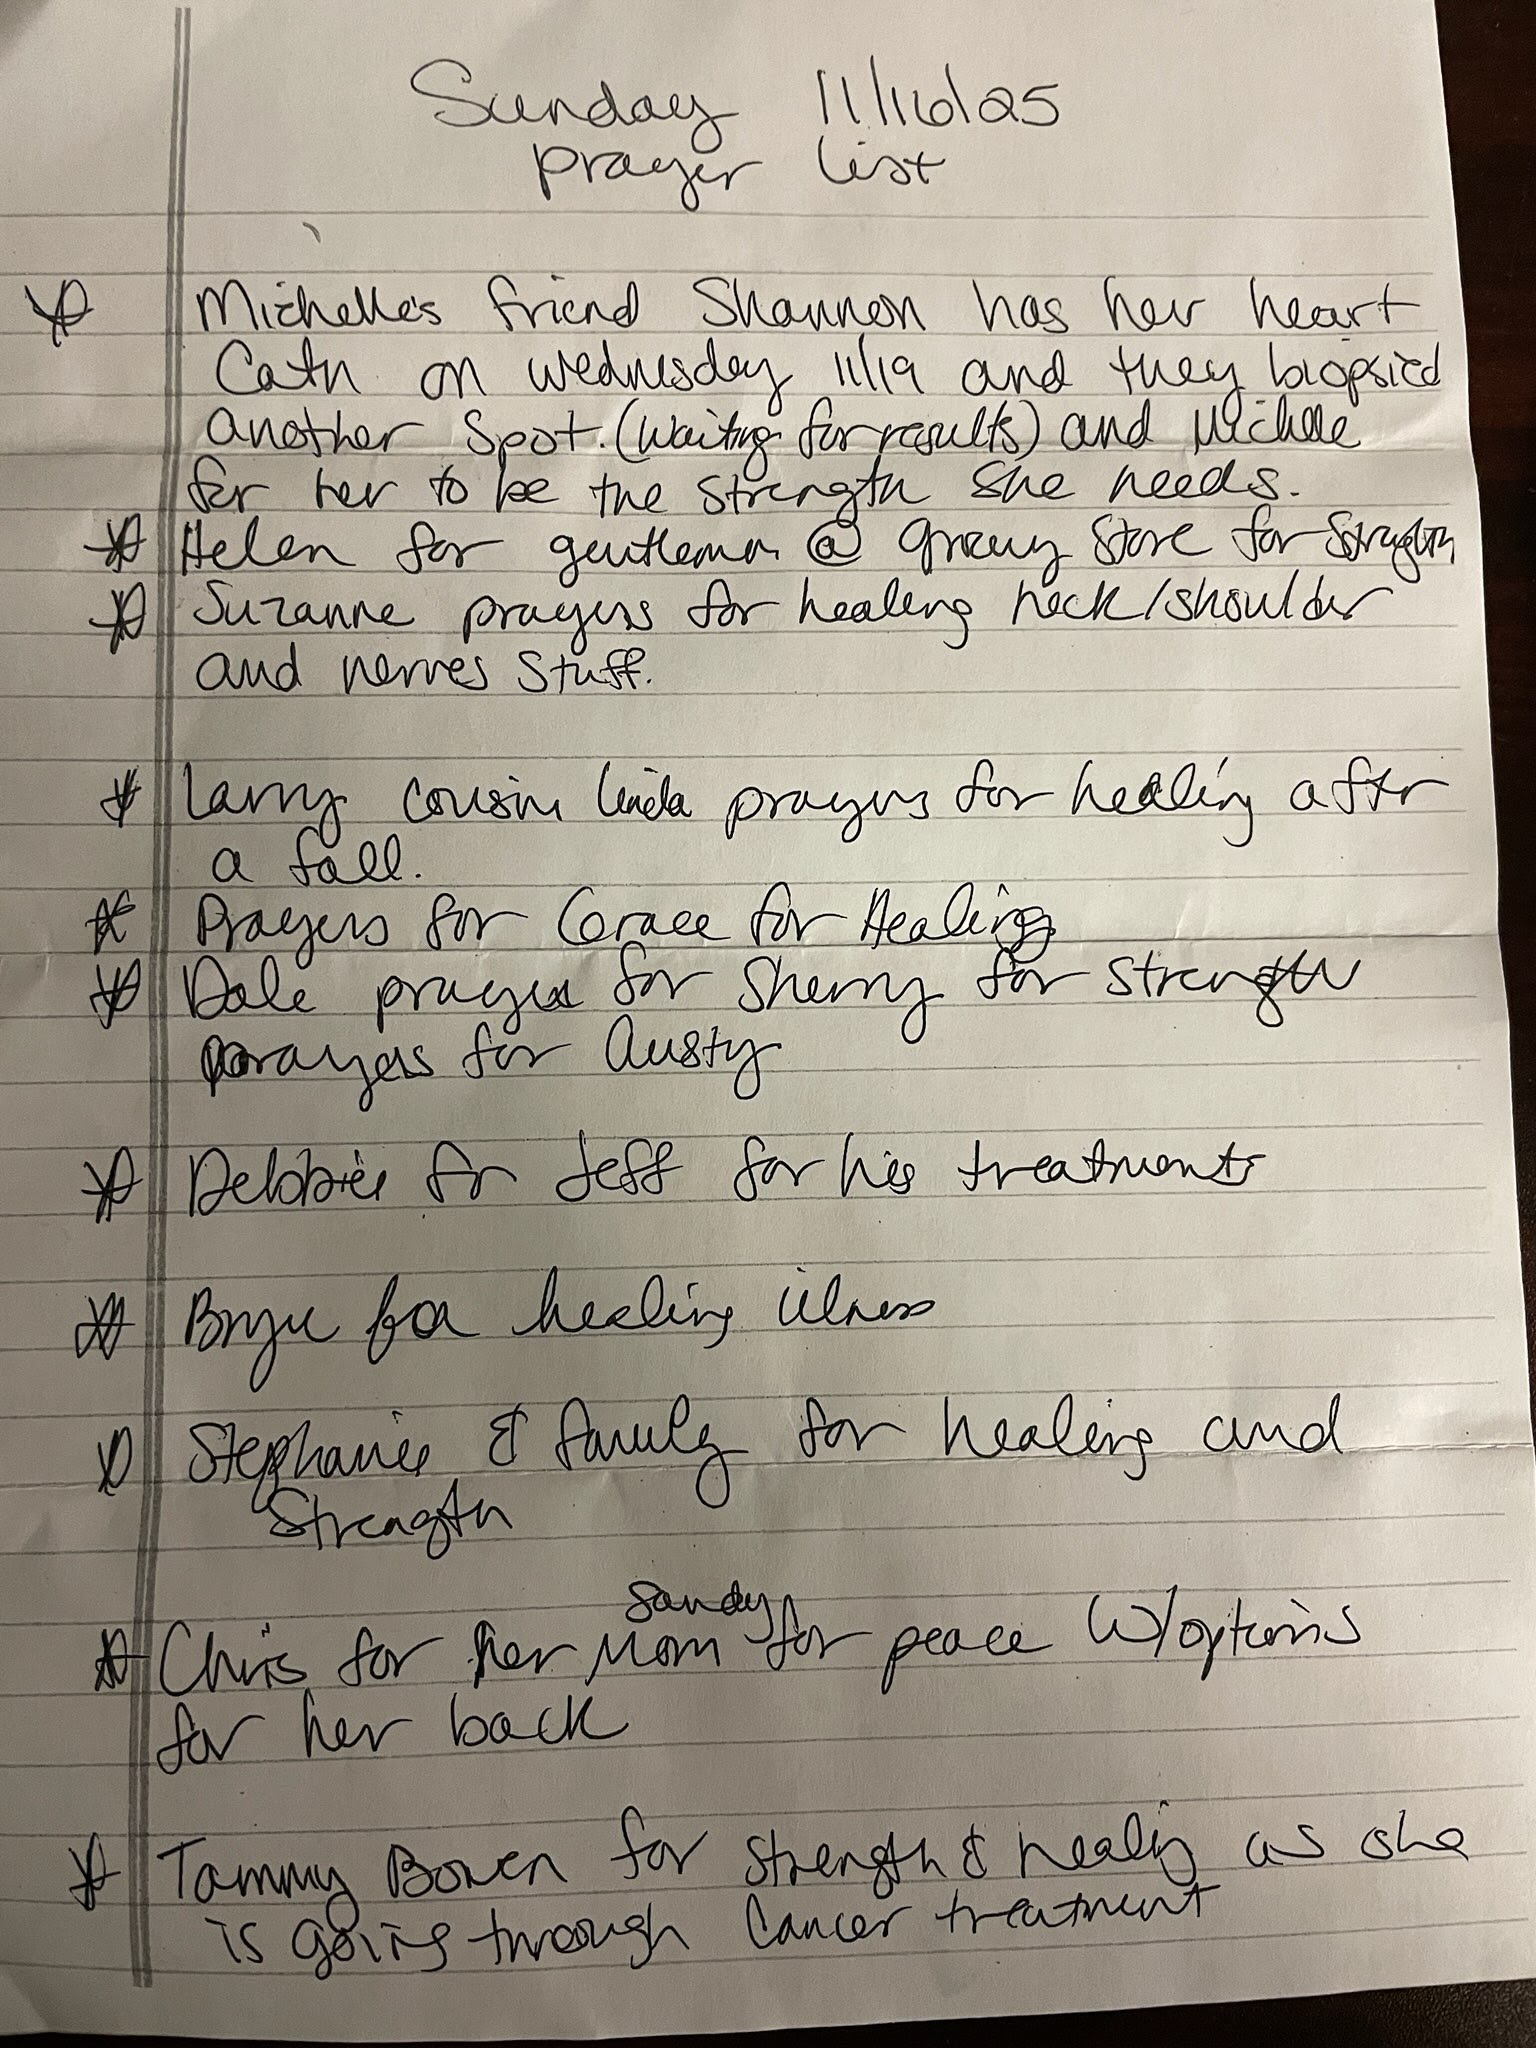 Sunday 11/16/25
prayer list
Michelle's friend Shannon has her heart
Cath on Wednesday 11/19 and they biopsied
another spot. (Waiting for results) and Michelle
for her to be the strength she needs.
Helen for gentleman @ grocery store for strength
Suzanne prayers for healing neck/shoulder
and nerves stuff.
Larry cousin Linda prayers for healing after
a fall.
Prayers for Grace for Healing
Dale prayers for Sherry for strength
prayers for Austy
Debbie for Jeff for his treatments
for healing illness
Stephanie & family for healing and
Strength
Sandy
Chris for her Mom for peace w/options
for her back
Tammy Bowen for strength & healing as she
is going through Cancer treatment